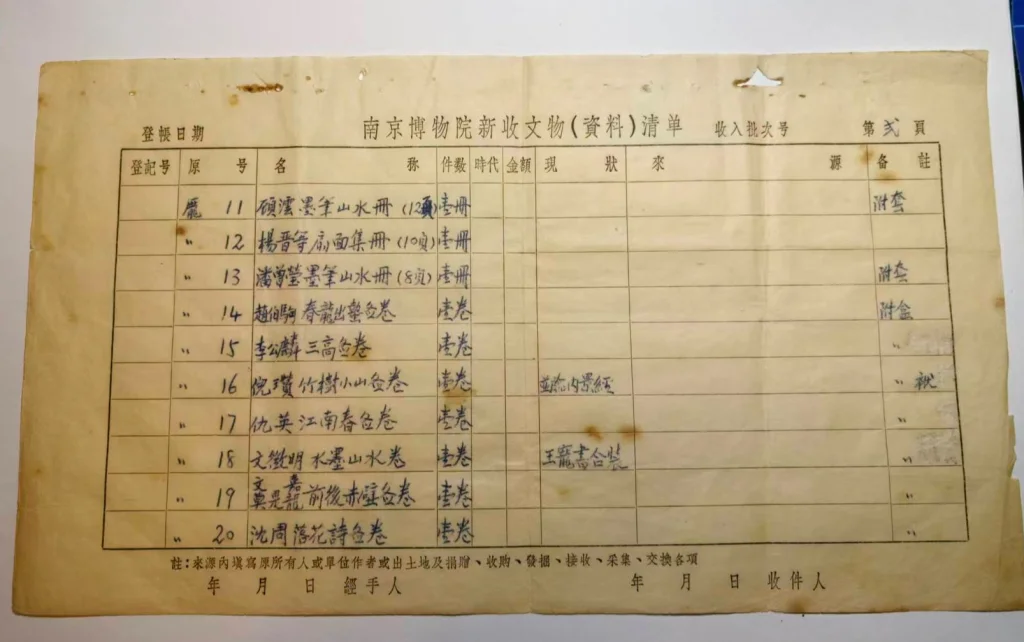 登帳日期 南京博物院新收文物(資料)清单 收入批次号 第 弍 頁
登記号 原号 名称 件数 時代 金額 現狀 來源 备註
龐 11 顾澐墨笔山水冊(12頁) 壹冊 附套
〃 12 楊晋等扇面集冊(10頁) 壹冊
〃 13 潘曾瑩墨笔山水冊(8頁) 壹冊 附套
〃 14 趙伯駒春龍出蟄啚卷 壹卷 附盒
〃 15 李公麟三高啚卷 壹卷 〃
〃 16 倪瓚竹樹小山啚卷 壹卷 〃
〃 17 仇英江南春啚卷 壹卷 〃
〃 18 文徵明水墨山水卷 壹卷 王寵書合裝 〃
〃 19 文嘉 莫是龍 前後赤壁啚卷 壹卷 〃
〃 20 沈周落花詩啚卷 壹卷 〃
註:來源內填寫原所有人或單位作者或出土地及捐贈、收购、發掘、接收、采集、交換各項
年 月 日 經手人 年 月 日 收件人